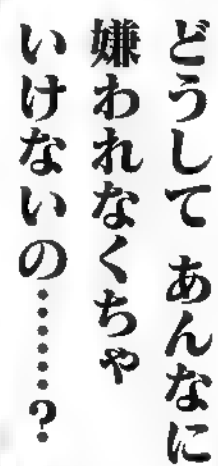 どうして あんなに
嫌われなくちゃ
いけないの……?